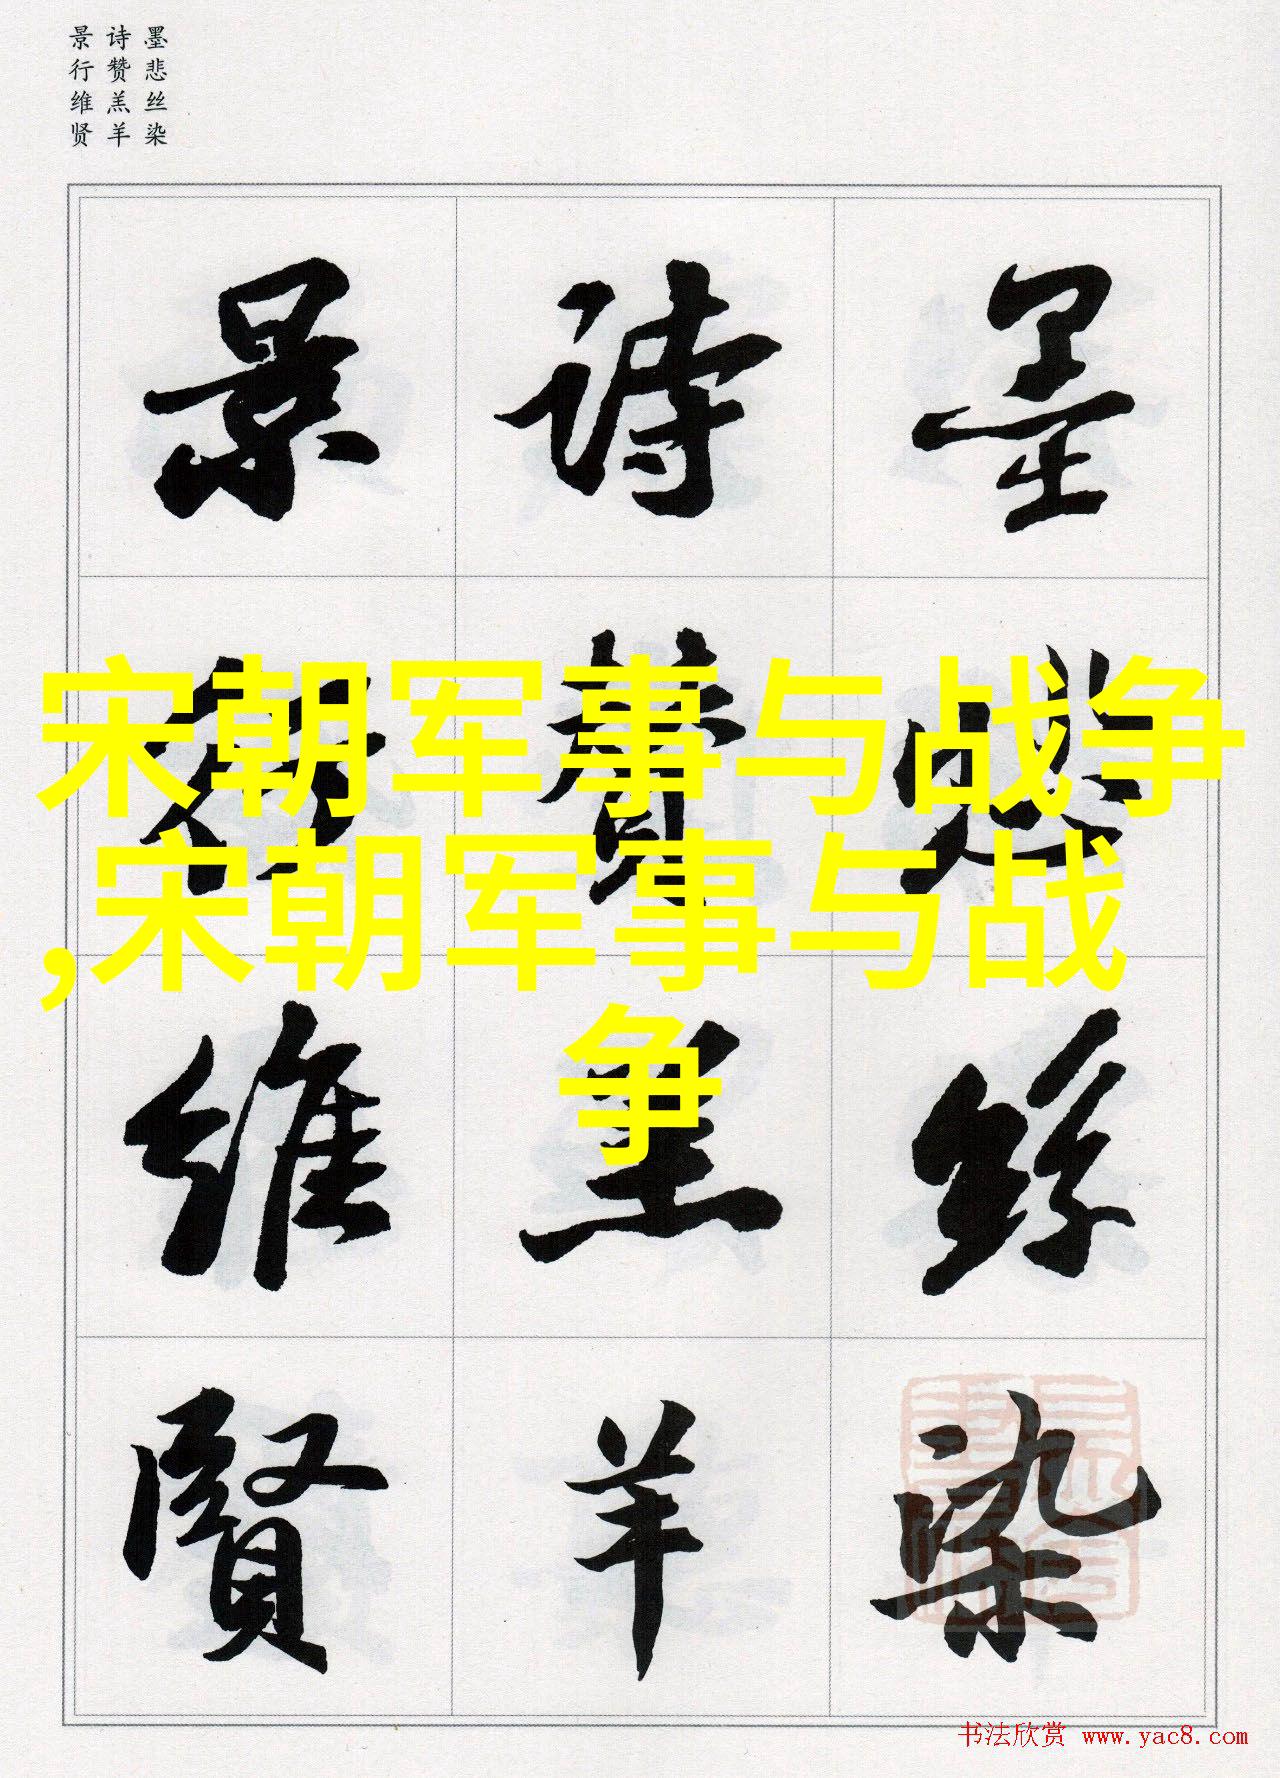 墨悲丝染
诗赞羔羊
景行维贤
宋朝军事与战争
,宋朝军事与战
争
墨悲絲染
詩贊羔羊
景行維賢
书法欣赏 www.yac8.com